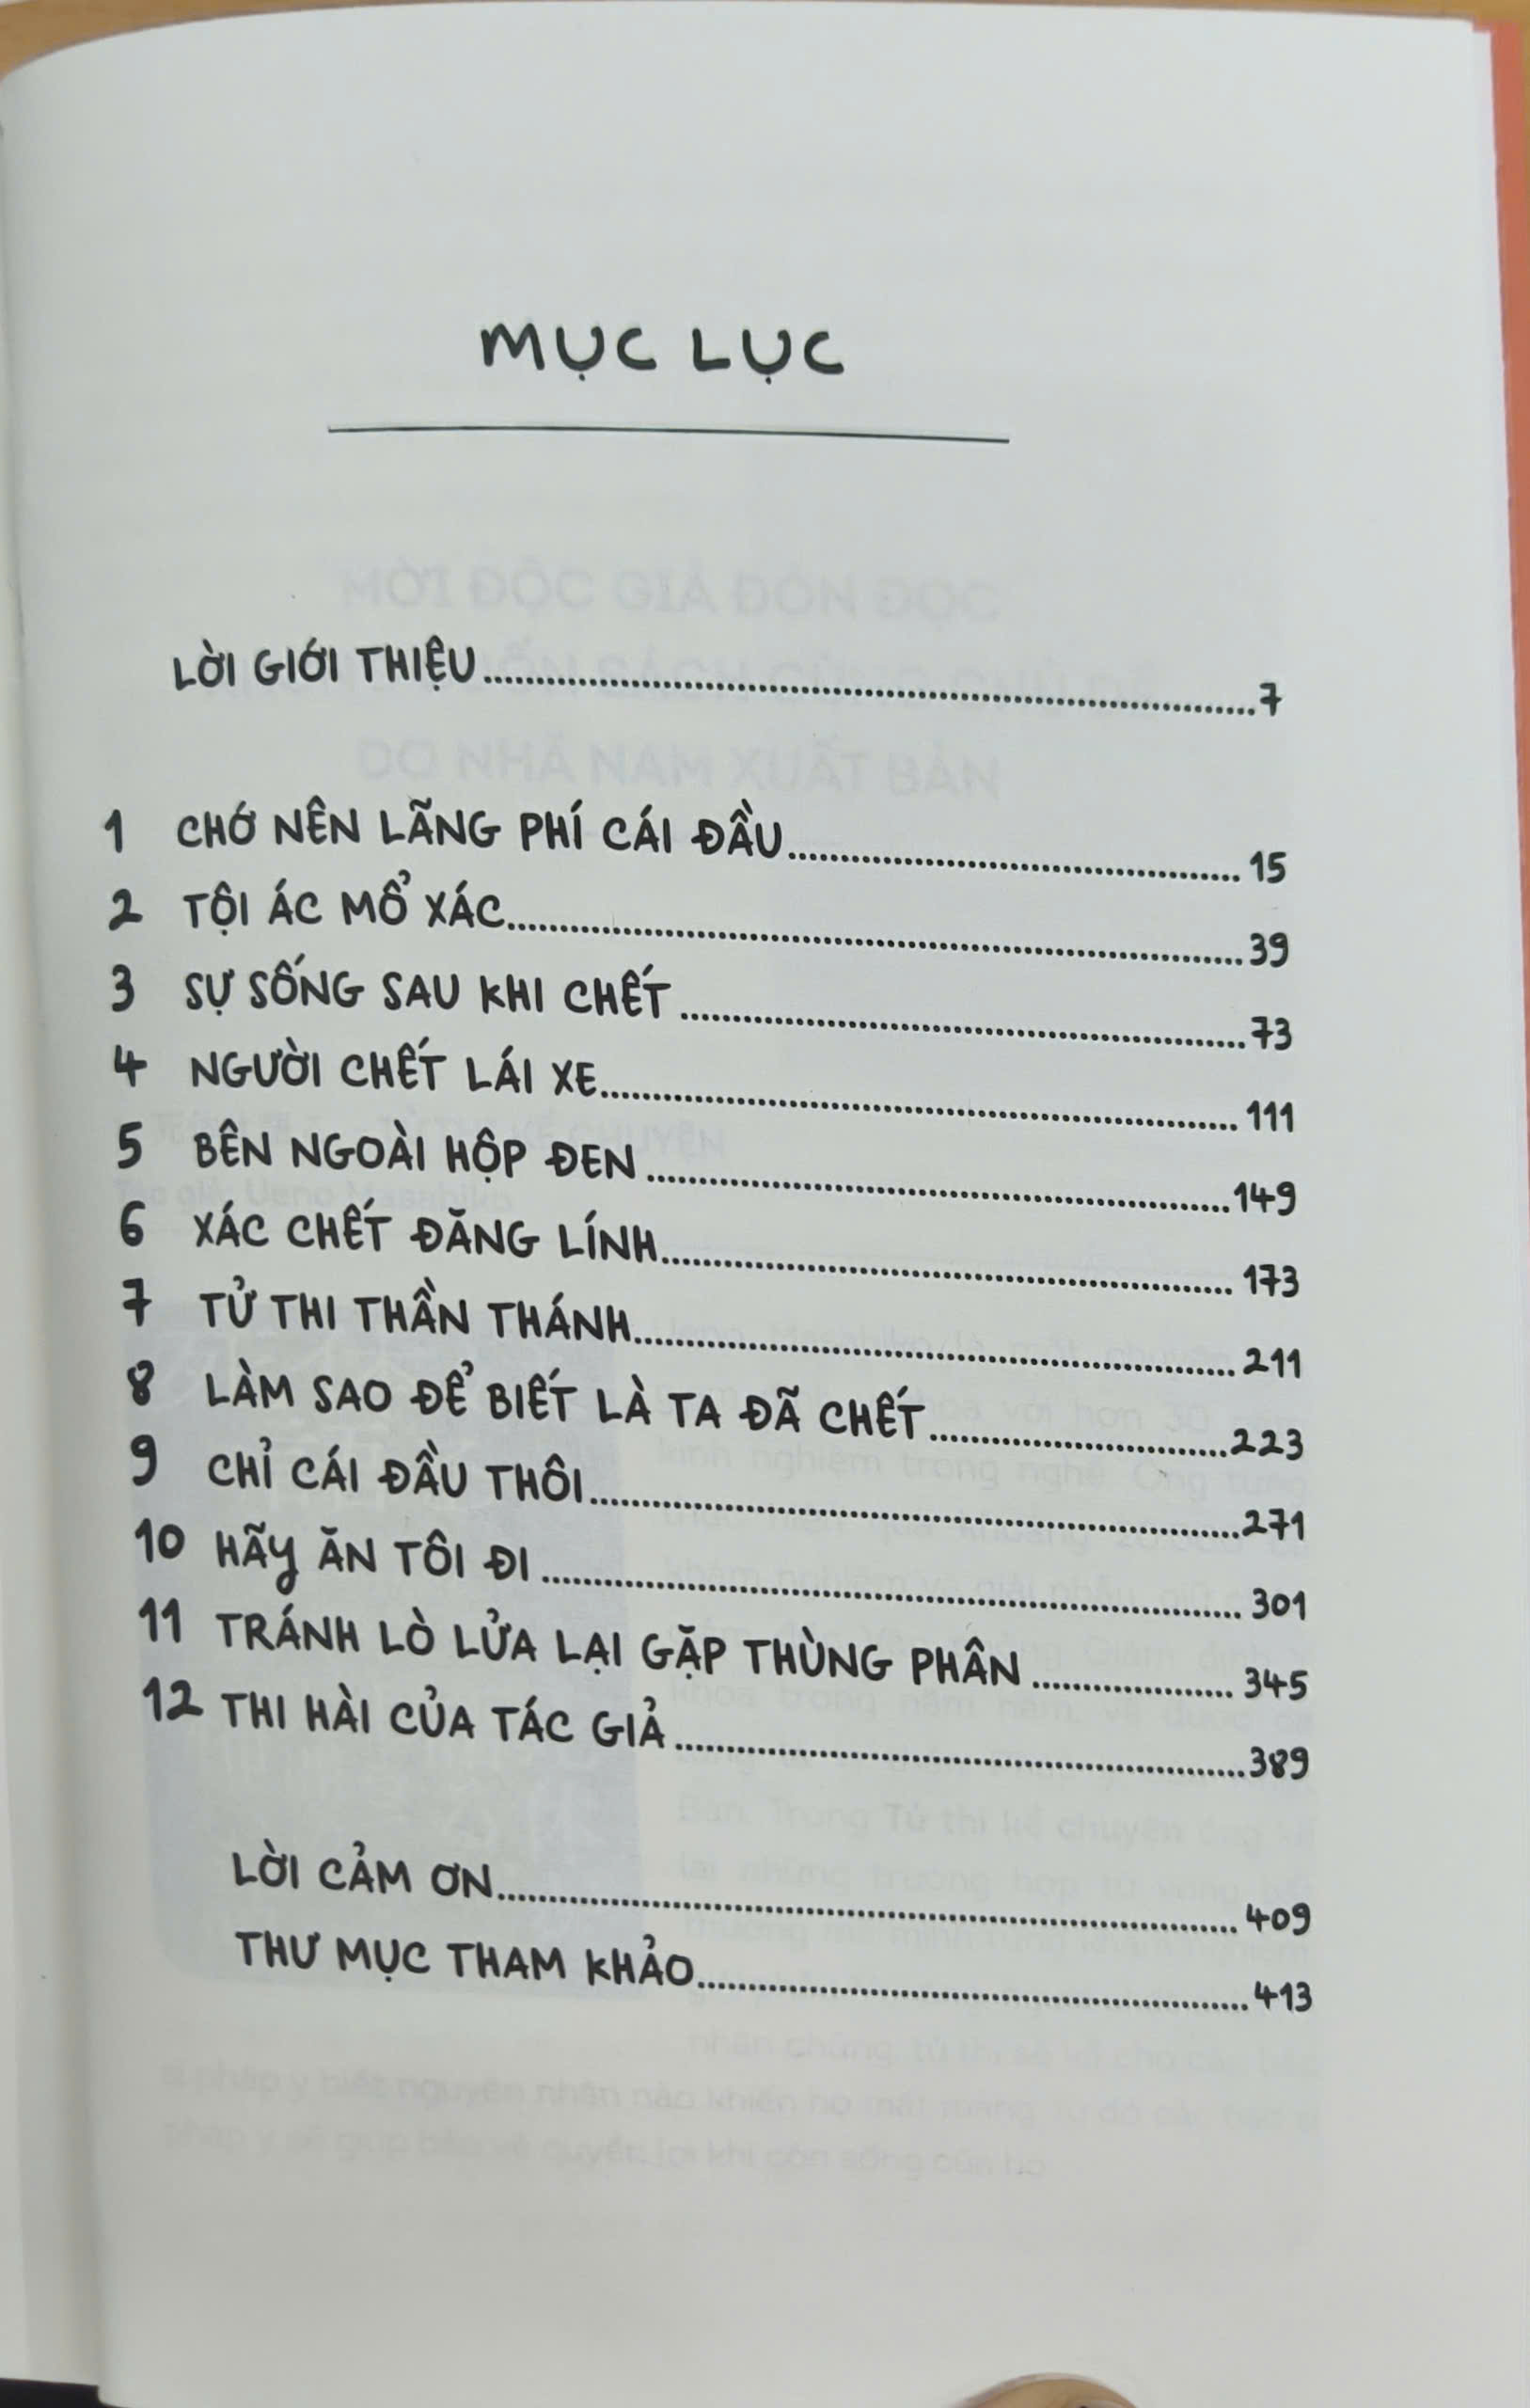 MỤC LỤC
LỜI GIỚI THIỆU 7
1 CHỚ NÊN LÃNG PHÍ CÁI ĐẦU 15
2 TỘI ÁC MỔ XÁC 39
3 SỰ SỐNG SAU KHI CHẾT 73
4 NGƯỜI CHẾT LÁI XE 111
5 BÊN NGOÀI HỘP ĐEN 149
6 XÁC CHẾT ĐĂNG LÍNH 173
7 TỬ THI THẦN THÁNH 211
8 LÀM SAO ĐỂ BIẾT LÀ TA ĐÃ CHẾT 223
9 CHỈ CÁI ĐẦU THÔI 271
10 HÃY ĂN TÔI ĐI 301
11 TRÁNH LÒ LỬA LẠI GẶP THÙNG PHÂN 345
12 THI HÀI CỦA TÁC GIẢ 389
LỜI CẢM ƠN 409
THƯ MỤC THAM KHẢO 413